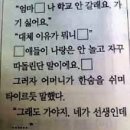 "엄마□나 학교 안 갈래요. 가
기 싫어요."
"대체 이유가 뭐니□"
"□애들이 나랑은 안 놀고 자꾸
따돌린단 말이에요□
그러자 어머니가 한숨을 쉬며
타이르듯 말했다.
"그래도 가야지. 네가 선생인데